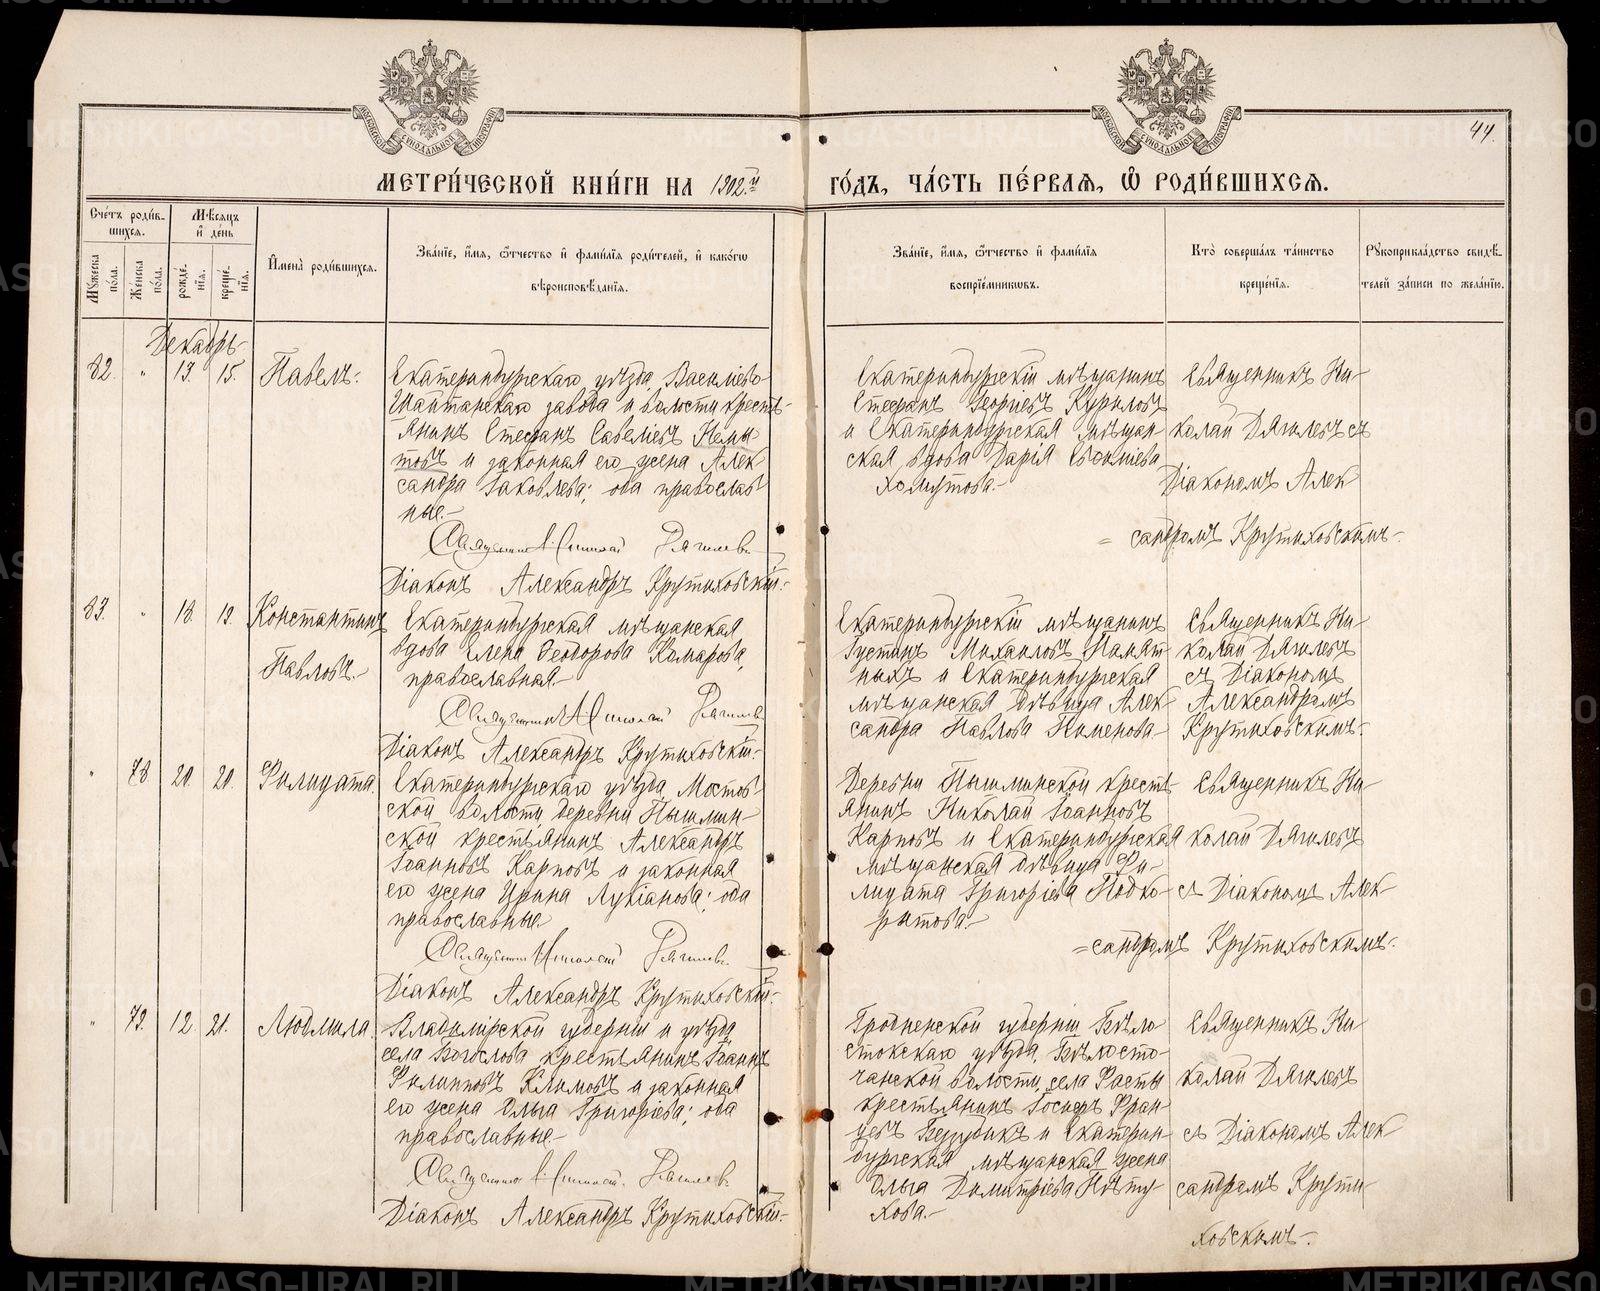 44.
МЕТРИ́ЧЕСКОЙ КНИ́ГИ НА 1902.й
ГО́ДЪ, ЧА́СТЬ ПЕ́РВАѦ, Ѽ РОДИ́ВШИХСѦ.
Сче́тъ роди́в-
шихсѧ.
Мѣ́сѧцъ
и҆ де́нь
Мꙋ́жеска
по́ла.
Же́нска
по́ла.
рожде́-
нїѧ.
креще́-
нїѧ.
И҆мена̀ роди́вшихсѧ.
Зва́нїе, и҆́мѧ, ѻ҆́тчество и҆ фами́лїѧ роди́телей, и҆ како́гѡ
вѣроисповѣ́данїѧ.
Зва́нїе, и҆́мѧ, ѻ҆́тчество и҆ фами́лїѧ
воспрїе́мникѡвъ.
Кто̀ соверша́лъ та́инство
креще́нїѧ.
Рꙋкоприкла́дство свидѣ́-
телей за́писи по жела́нїю.
Декабрь
82. " 13. 15. Павелъ.
Екатеринбургскаго уѣзда, Василіево-
Шайтанскаго завода и волости кресть-
янинъ Стефанъ Савеліевъ
и законная его жена Алек-
сандра Іаковлева; оба православ-
ные.-
Священникъ Николай Дягилевъ.
Діаконъ Александръ Крутиховскій.
Екатеринбургскій мѣщанинъ
Стефанъ Георгіевъ Куриловъ
и Екатеринбургская мѣщан-
ская вдова Дарія Евфиміева
Хомутова.-
Священникъ Ни-
колай Дягилевъ съ
Діакономъ Алек
= сандромъ Крутиховскимъ.-
83. " 18. 19. Константинъ
Павловъ.-
Екатеринбургская мѣщанская
вдова Елена Ѳеодорова Комарова,
православная.-
Священникъ Николай Дягилевъ
Діаконъ Александръ Крутиховскій.
Екатеринбургскій мѣщанинъ
Іустинъ Михаиловъ Памят-
ныхъ и Екатеринбургская
мѣщанская дѣвица Алек-
сандра Павлова Пименова.-
Священникъ Ни-
колай Дягилевъ
съ Діакономъ
Александромъ
Крутиховскимъ.-
" 78 20. 20. Филицата.
Екатеринбургскаго уѣзда, Мостов-
ской волости, деревни Пышмин-
ской крестьянинъ Александръ
Іоанновъ Карповъ и законная
его жена Ирина Лукіанова; оба
православные.-
Священникъ Николай Дягилевъ.
Діаконъ Александръ Крутиховскій.
Деревни Пышминской кресть-
янинъ Николай Іоанновъ
Карповъ и Екатеринбургская
мѣщанская дѣвица Фи-
лицата Григоріева Подко-
рытова.-
Священникъ Ни-
колай Дягилевъ
съ Діакономъ Алек-
=сандромъ Крутиховскимъ.
" 79. 12. 21. Людмила.
Владимірской губерніи и уѣзда
села Богослова крестьянинъ Іоаннъ
Филипповъ Климовъ и законная
его жена Ольга Григоріева; оба
православные.-
Священникъ Николай Дягилевъ.
Діаконъ Александръ Крутиховскій.-
Гродненской губерніи Бѣло-
стокскаго уѣзда, Бѣлосто-
чанской волости, села Фасты
крестьянинъ Іосифъ Фран-
цевъ и Екатерин-
бургская мѣщанская жена
Ольга Димитріева Пѣту-
хова.-
Священникъ Ни-
колай Дягилевъ
съ Діакономъ Алек
сандромъ Крути-
ховскимъ.-
METRIKI.GASO-URAL.RU